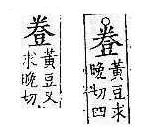 𧯦黃豆求
晚切四
𧯦黃豆又
求晚切